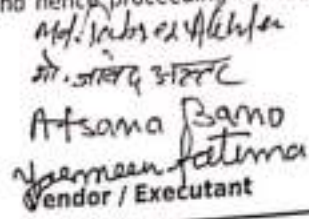 no hence proceeding
Md.
मो. जावेद अख्तर
Afsana Bano
Yasmeen fatima
Vendor / Executant